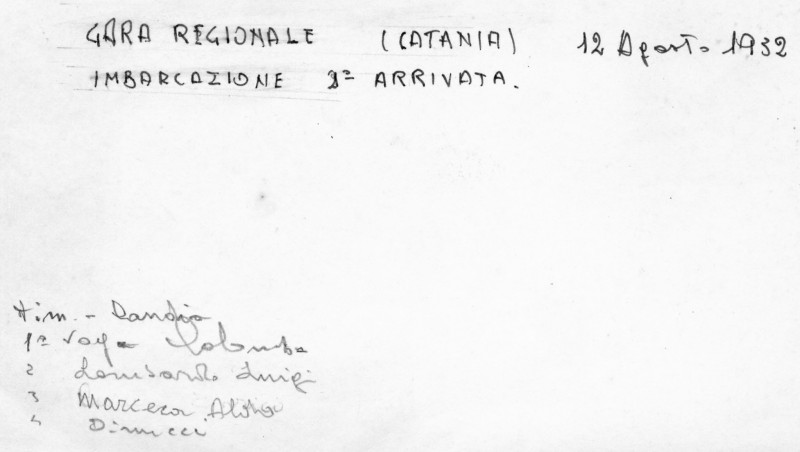 GARA REGIONALE (CATANIA) 12 Agosto 1932
IMBARCAZIONE 1ª ARRIVATA.
Tim. - Dandio
1ª Voga Colomba
2 Lombardo Luigi
3 Marcera
4 Dinucci